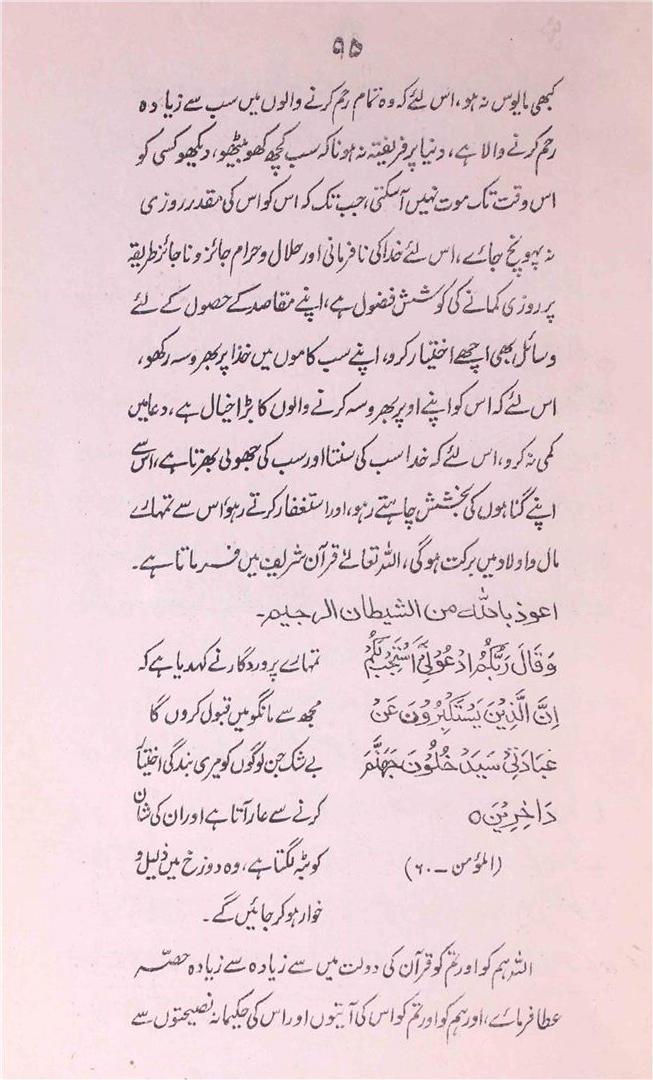 ۹۵
کبھی مایوس نہ ہو، اس لئے کہ وہ تمام رحم کرنے والوں میں سب سے زیادہ
رحم کرنے والا ہے، دنیا پر فریفتہ نہ ہونا کہ سب کچھ کھو بیٹھو، دیکھو کسی کو
اس وقت تک موت نہیں آسکتی، جب تک کہ اس کو اس کی مقدر روزی
نہ پہونچ جائے، اس لئے خدا کی نافرمانی اور حلال و حرام جائز و ناجائز طریقہ
پر روزی کمانے کی کوشش فضول ہے، اپنے مقاصد کے حصول کے لئے
وسائل بھی اچھے اختیار کرو، اپنے سب کاموں میں خدا پر بھروسہ رکھو،
اس لئے کہ اس کو اپنے اوپر بھروسہ کرنے والوں کا بڑا خیال ہے، دعا میں
کمی نہ کرو، اس لئے کہ خدا سب کی سنتا اور سب کی جھولی بھرتا ہے، اس سے
اپنے گناہوں کی بخشش چاہتے رہو، اور استغفار کرتے رہو، اس سے تمہارے
مال و اولاد میں برکت ہوگی، اللہ تعالےٰ قرآن شریف میں فرماتا ہے۔
اعوذ باللہ من الشیطان الرجیم۔
وَقَالَ رَبُّكُمُ ادْعُوْنِیْٓ اَسْتَجِبْ لَكُمْ
اِنَّ الَّذِیْنَ یَسْتَكْبِرُوْنَ عَنْ
عِبَادَتِیْ سَیَدْخُلُوْنَ جَهَنَّمَ
دَاخِرِیْنَ ○
(المؤمن ۔ ۶۰)
تمہارے پروردگار نے کہدیا ہے کہ
مجھ سے مانگو میں قبول کروں گا
بے شک جن لوگوں کو میری بندگی اختیار
کرنے سے عار آتا ہے اور ان کی شان
کو بٹہ لگتا ہے، وہ دوزخ میں ذلیل و
خوار ہو کر جائیں گے۔
اللہ ہم کو اور تم کو قرآن کی دولت میں سے زیادہ سے زیادہ حصّہ
عطا فرمائے، اور ہم کو اور تم کو اس کی آیتوں اور اس کی حکیمانہ نصیحتوں سے